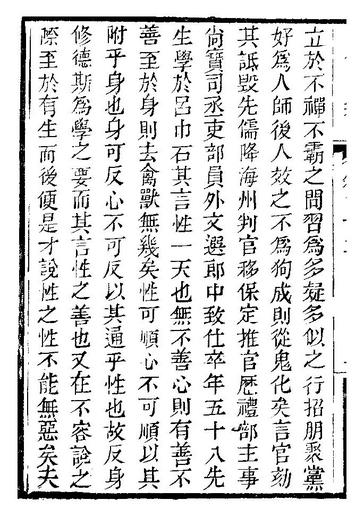 立於不禪不霸之間習為多疑多似之行招朋聚黨
好為人師後人效之不為狗成則從鬼化矣言官劾
其詆毀先儒降海州判官移保定推官歷禮部主事
尚寶司丞吏部員外文選郎中致仕卒年五十八先
生學於呂巾石其言性一天也無不善心則有善不
善至於身則去禽獸無幾矣性可順心不可順以其
附乎身也身可反心不可反以其通乎性也故反身
修德斯為學之要而其言性之善也又在不容說之
際至於有生而後便是才說性之性不能無惡矣夫